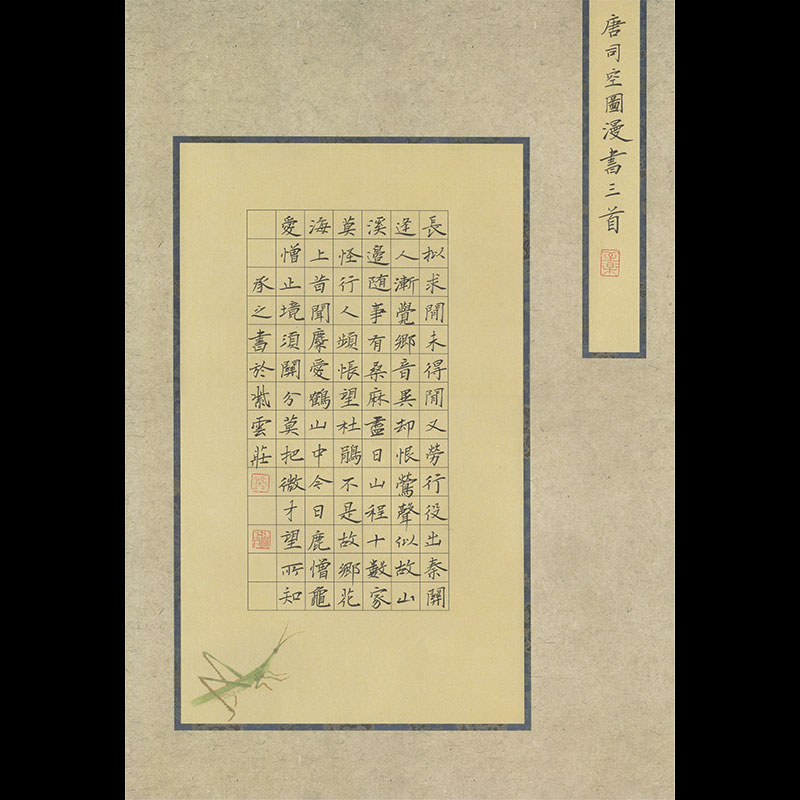 唐司空圖漫書三首
長拟求閒未得閒又勞行役出秦關
逢人漸覺鄉音異却恨鶯聲似故山
溪邊随事有桑麻盡日山程十數家
莫怪行人頻悵望杜鵑不是故鄉花
海上昔聞麋愛鶴山中今日鹿憎龜
愛憎止境須關分莫把微才望所知
承之書於紫雲莊